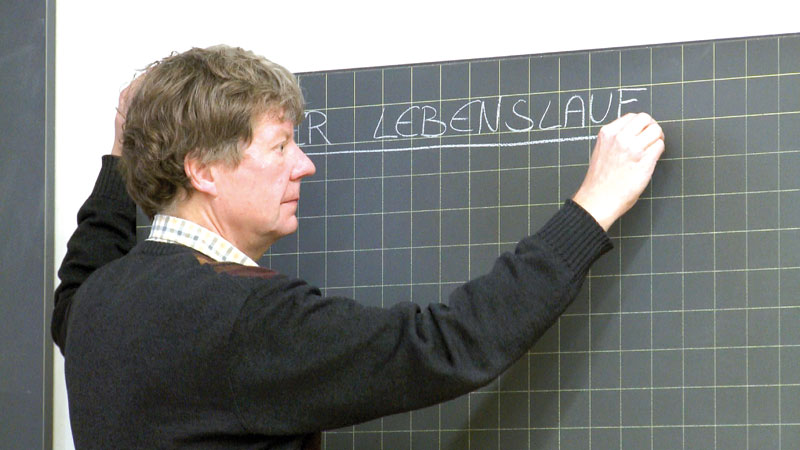 ER LEBENSLAUF